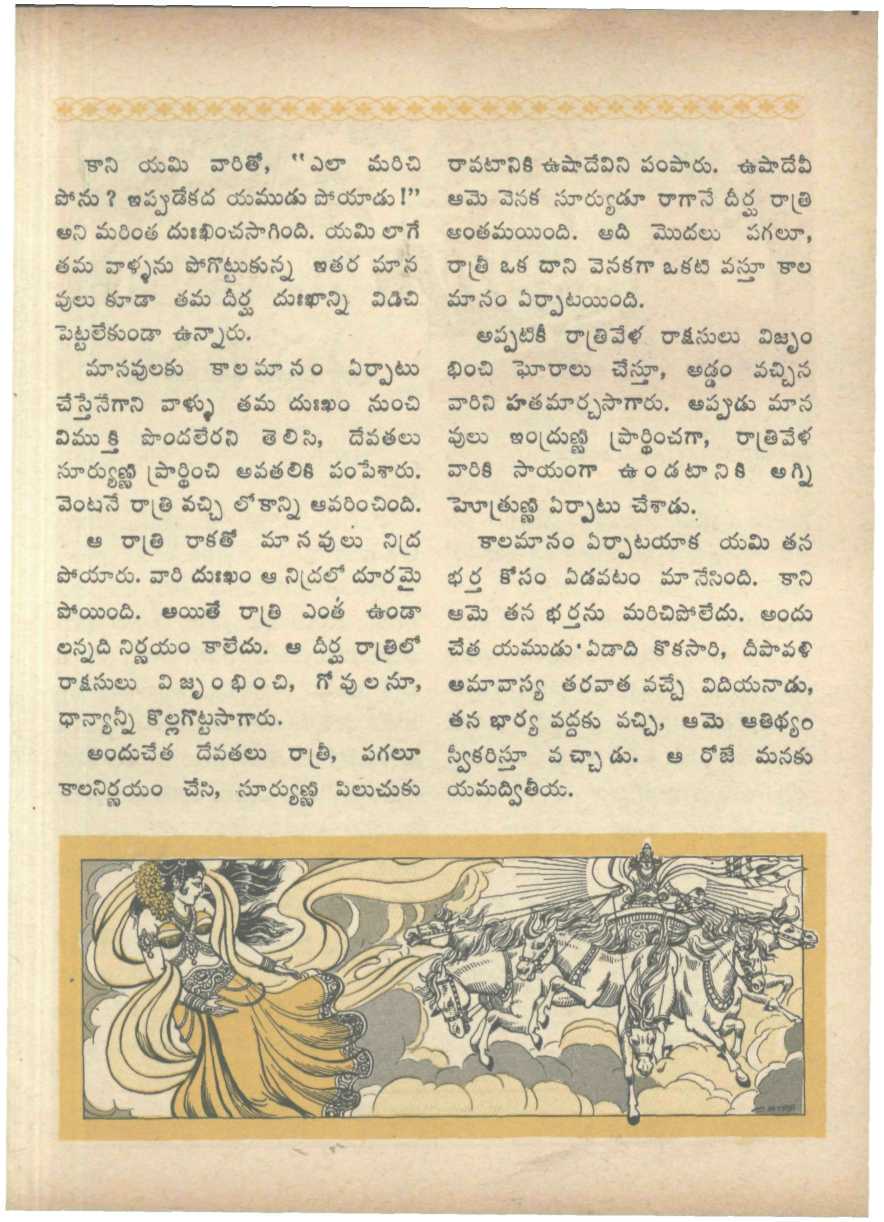 కాని యమి వారితో, "ఎలా మరిచి
పోను? ఇప్పుడేకద యముడు పోయాడు!"
అని మరింత దుఃఖించసాగింది. యమి లాగే
తమ వాళ్ళను పోగొట్టుకున్న ఇతర మాన
వులు కూడా తమ దీర్ఘ దుఃఖాన్ని విడిచి
పెట్టలేకుండా ఉన్నారు.
మానవులకు కాలమానం ఏర్పాటు
చేస్తేనేగాని వాళ్ళు తమ దుఃఖం నుంచి
విముక్తి పొందలేరని తెలిసి, దేవతలు
సూర్యుణ్ణి ప్రార్థించి అవతలికి పంపేశారు.
వెంటనే రాత్రి వచ్చి లోకాన్ని ఆవరించింది.
ఆ రాత్రి రాకతో మానవులు నిద్ర
పోయారు. వారి దుఃఖం ఆ నిద్రలో దూరమై
పోయింది. అయితే రాత్రి ఎంత ఉండా
లన్నది నిర్ణయం కాలేదు. ఆ దీర్ఘ రాత్రిలో
రాక్షసులు విజృంభించి, గోవులనూ,
ధాన్యాన్నీ కొల్లగొట్టసాగారు.
అందుచేత దేవతలు రాత్రీ, పగలూ
కాలనిర్ణయం చేసి, సూర్యుణ్ణి పిలుచుకు
రావటానికి ఉషాదేవిని పంపారు. ఉషాదేవీ
ఆమె వెనక సూర్యుడూ రాగానే దీర్ఘ రాత్రి
అంతమయింది. అది మొదలు పగలూ,
రాత్రీ ఒక దాని వెనకగా ఒకటి వస్తూ కాల
మానం ఏర్పాటయింది.
అప్పటికీ రాత్రివేళ రాక్షసులు విజృం
భించి ఘోరాలు చేస్తూ, అడ్డం వచ్చిన
వారిని హతమార్చసాగారు. అప్పుడు మాన
వులు ఇంద్రుణ్ణి ప్రార్థించగా, రాత్రివేళ
వారికి సాయంగా ఉండటానికి అగ్ని
హోత్రుణ్ణి ఏర్పాటు చేశాడు.
కాలమానం ఏర్పాటయాక యమి తన
భర్త కోసం ఏడవటం మానేసింది. కాని
ఆమె తన భర్తను మరిచిపోలేదు. అందు
చేత యముడు ఏడాది కొకసారి, దీపావళి
అమావాస్య తరవాత వచ్చే విదియనాడు,
తన భార్య వద్దకు వచ్చి, ఆమె ఆతిథ్యం
స్వీకరిస్తూ వచ్చాడు. ఆ రోజే మనకు
యమద్వితీయ.